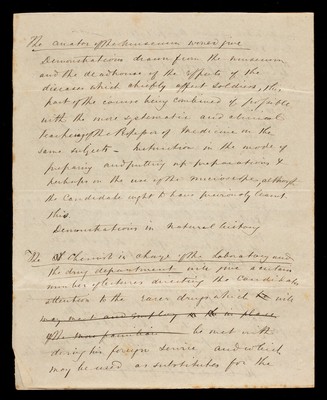 The curator of the museum would give
Demonstrations drawn from the museum
and the deadhouse of the effects of the
diseases which chiefly affect soldiers, this
part of the course being combined if possible
with the more systematic and clinical
teaching of the Professor of Medicine on the
same subjects – Instruction in the mode of
preparing and putting up preparations &
perhaps in the use of the microscope, although
the Candidate ought to have previously learnt
this.
Demonstrations in Natural history
The Chemist in charge of the Laboratory and
the drug department will give a certain
number of lectures directing the Candidates
attention to the rarer drugs which he will
may meet and employ in place
of the more familiar be met with
during his foreign service, and which
may be used as substitutes for the